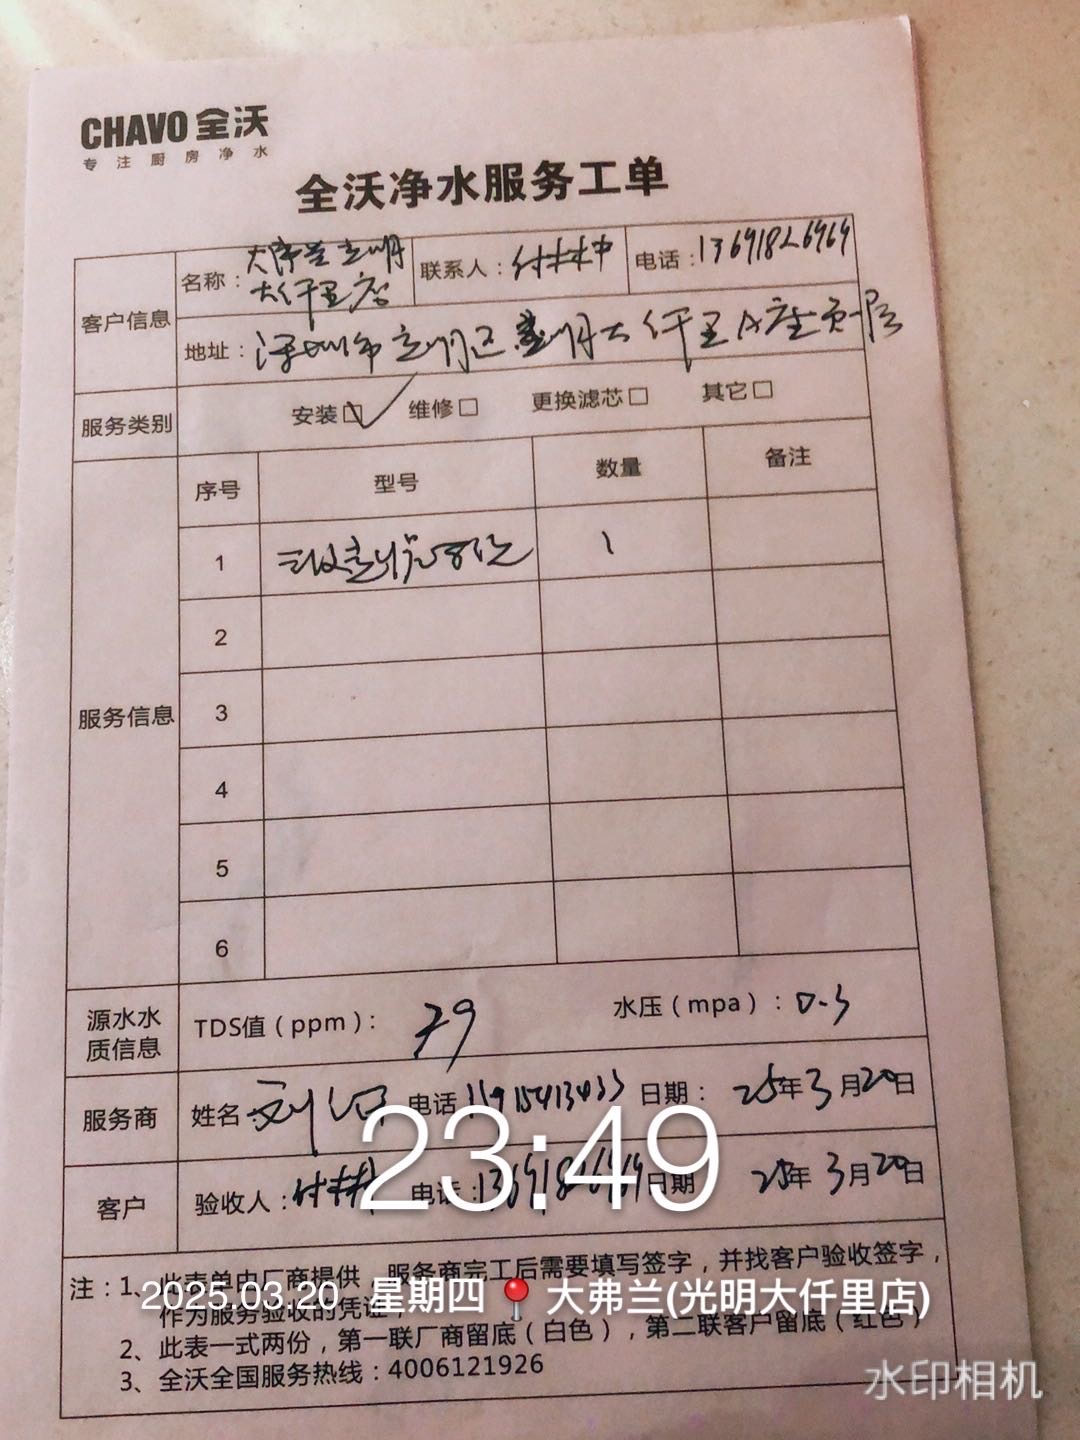 CHAVO 全沃
专注厨房净水
全沃净水服务工单
客户信息
名称：大弗兰光明
大仟里店
联系人：付林中
电话：13691826969
地址：深圳市光明区光明大仟里A座负一层
服务类别
安装□✓ 维修□ 更换滤芯□ 其它□
服务信息
序号 型号 数量 备注
1 1
2
3
4
5
6
源水水质信息
TDS值（ppm）：79 水压（mpa）：0.3
服务商
姓名 刘 电话 日期：25年3月20日
客户
验收人：付林中 电话：13691826969 日期 25年3月20日
23:49
注：1、此表单由厂商提供，服务商完工后需要填写签字，并找客户验收签字，
作为服务验收的凭证，
2025.03.20 星期四 大弗兰(光明大仟里店)
2、此表一式两份，第一联厂商留底（白色），第二联客户留底（红色）
3、全沃全国服务热线：4006121926
水印相机